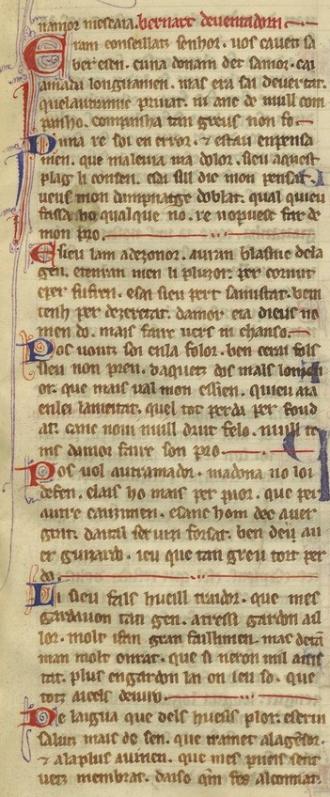 namor mescaia. bernart deuentadorn
Eram conseillatz senhor. uos cauetz sa
ber e sen. cuna donam det samor. cai
amada longuamen. mas era sai deuertat.
quelautramic priuat. ni anc de nuill com
panho. companhia tan greus non fo
Duna re soi en error. & estau enpensa
men. que maleuia ma dolor. sieu aquest
plag li consen. esaisill die mon pensat.
ueus mon dampnatge doblat. qual quieu
fassa ho qualque no. re nopuesc far de
mon pro.
Esieu lam adezonor. auran blasme dela
gen. etenran men li pluzor. per cornut
eper sufren. esai sieu pert samistat. bem
tenh per dezeretat. damor eia dieus no
men do. mais faire uers ni chanso.
Pos uoutz soi enla folor. ben serai fols
sieu non pren. daquetz dos mals lo
or. que mais ual mon essien. quieu aia
enlei lameitat. quel tot perda per foud
at. canc nom nuill drut felo. nuill te
ms damor faire son pro
Pos uol autramador. madona no loi
defen. elais ho mais per paor. que per
autre cauzimen. esanc hom dec auer
grat. dautil seruizi forsat. ben dei au
er guizardo. ieu que tan greu tort per
do.
Li sieu fals hueill traidor. que mes
gardauon tan gen. atressi gardon ail
lor. molt ifan gran faillimen. mas detan
man molt onrat. que si neron mil aiustat
tat. plus engardon lai on ieu so. que
totz aicels deuiro.
De laigua que dels hueils plor. escriu
salutz mais de sen. que tramet alagensor.
& alaplus auinen. que mes pueis sent
uetz membrat. daiso qim fes alcomiat.